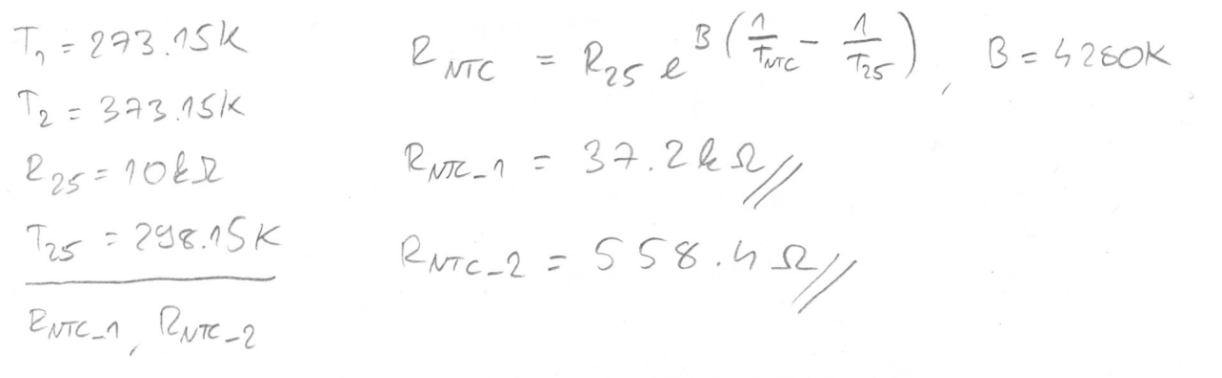 T₁ = 273.15K
T₂ = 373.15K
R₂₅ = 10kΩ
T₂₅ = 298.15K
R_NTC_1, R_NTC_2
R_NTC = R₂₅ e^B(1/T_NTC - 1/T₂₅), B = 4280K
R_NTC_1 = 37.2kΩ//
R_NTC_2 = 558.4Ω//